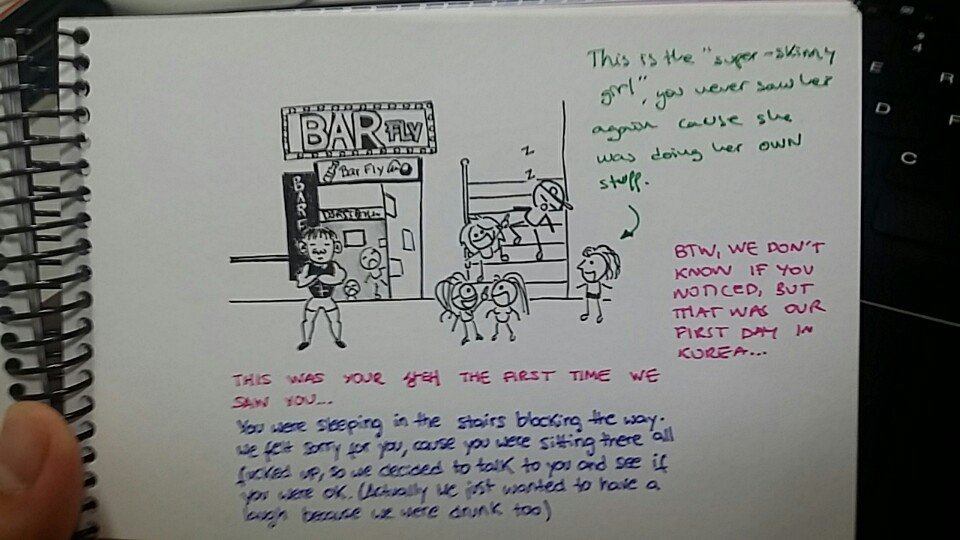 BAR FLY
Bar Fly
BARF
z
z
This is the "super-skinny
girl", you never saw her
again cause she
was doing her OWN
stuff.
BTW, WE DON'T
KNOW IF YOU
NOTICED, BUT
THAT WAS OUR
FIRST DAY IN
KOREA...
THIS WAS YOUR THE FIRST TIME WE
SAW YOU...
You were sleeping in the stairs blocking the way.
We felt sorry for you, cause you were sitting there all
fucked up, so we decided to talk to you and see if
you were ok. (Actually we just wanted to have a
laugh because we were drunk too)
E R
D F
C